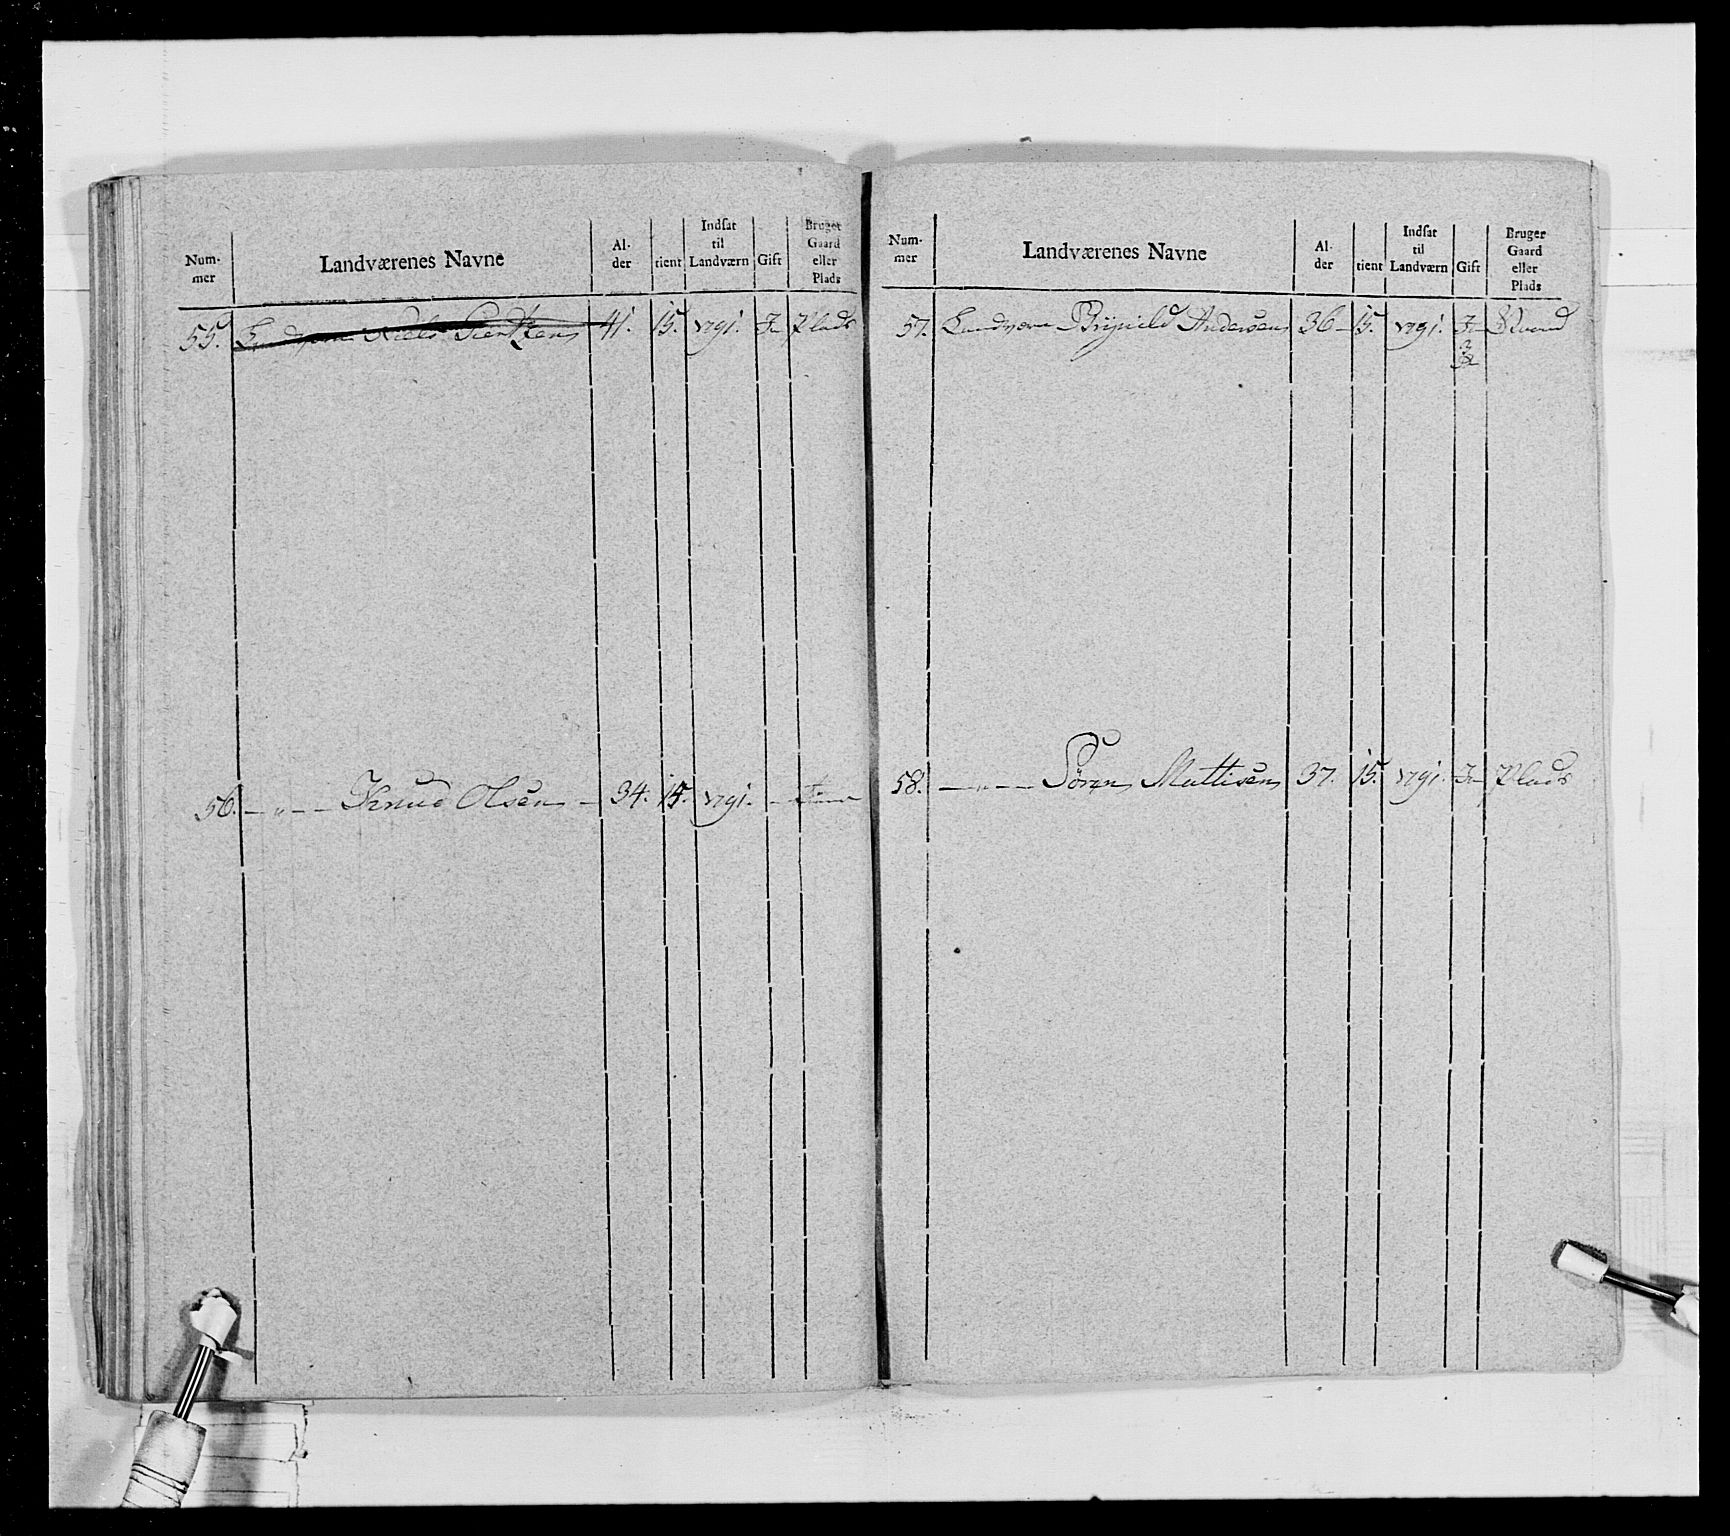 Num-
mer
Landværenes Navne
Al-
der
tient
Indsat
til
Landværn
Gift
Bruger
Gaard
eller
Plads
55. Landværn Niels 41. 15. 1791. Plads
56. — „ — — Knud Olsen — 34. 14. 1791. —
Num-
mer
Landværenes Navne
Al-
der
tient
Indsat
til
Landværn
Gift
Bruger
Gaard
eller
Plads
57. Landværn Brynild Andersen 36 — 15. 1791.
58. — „ — — Søren Mattisen 37. 15. 1791. Plads